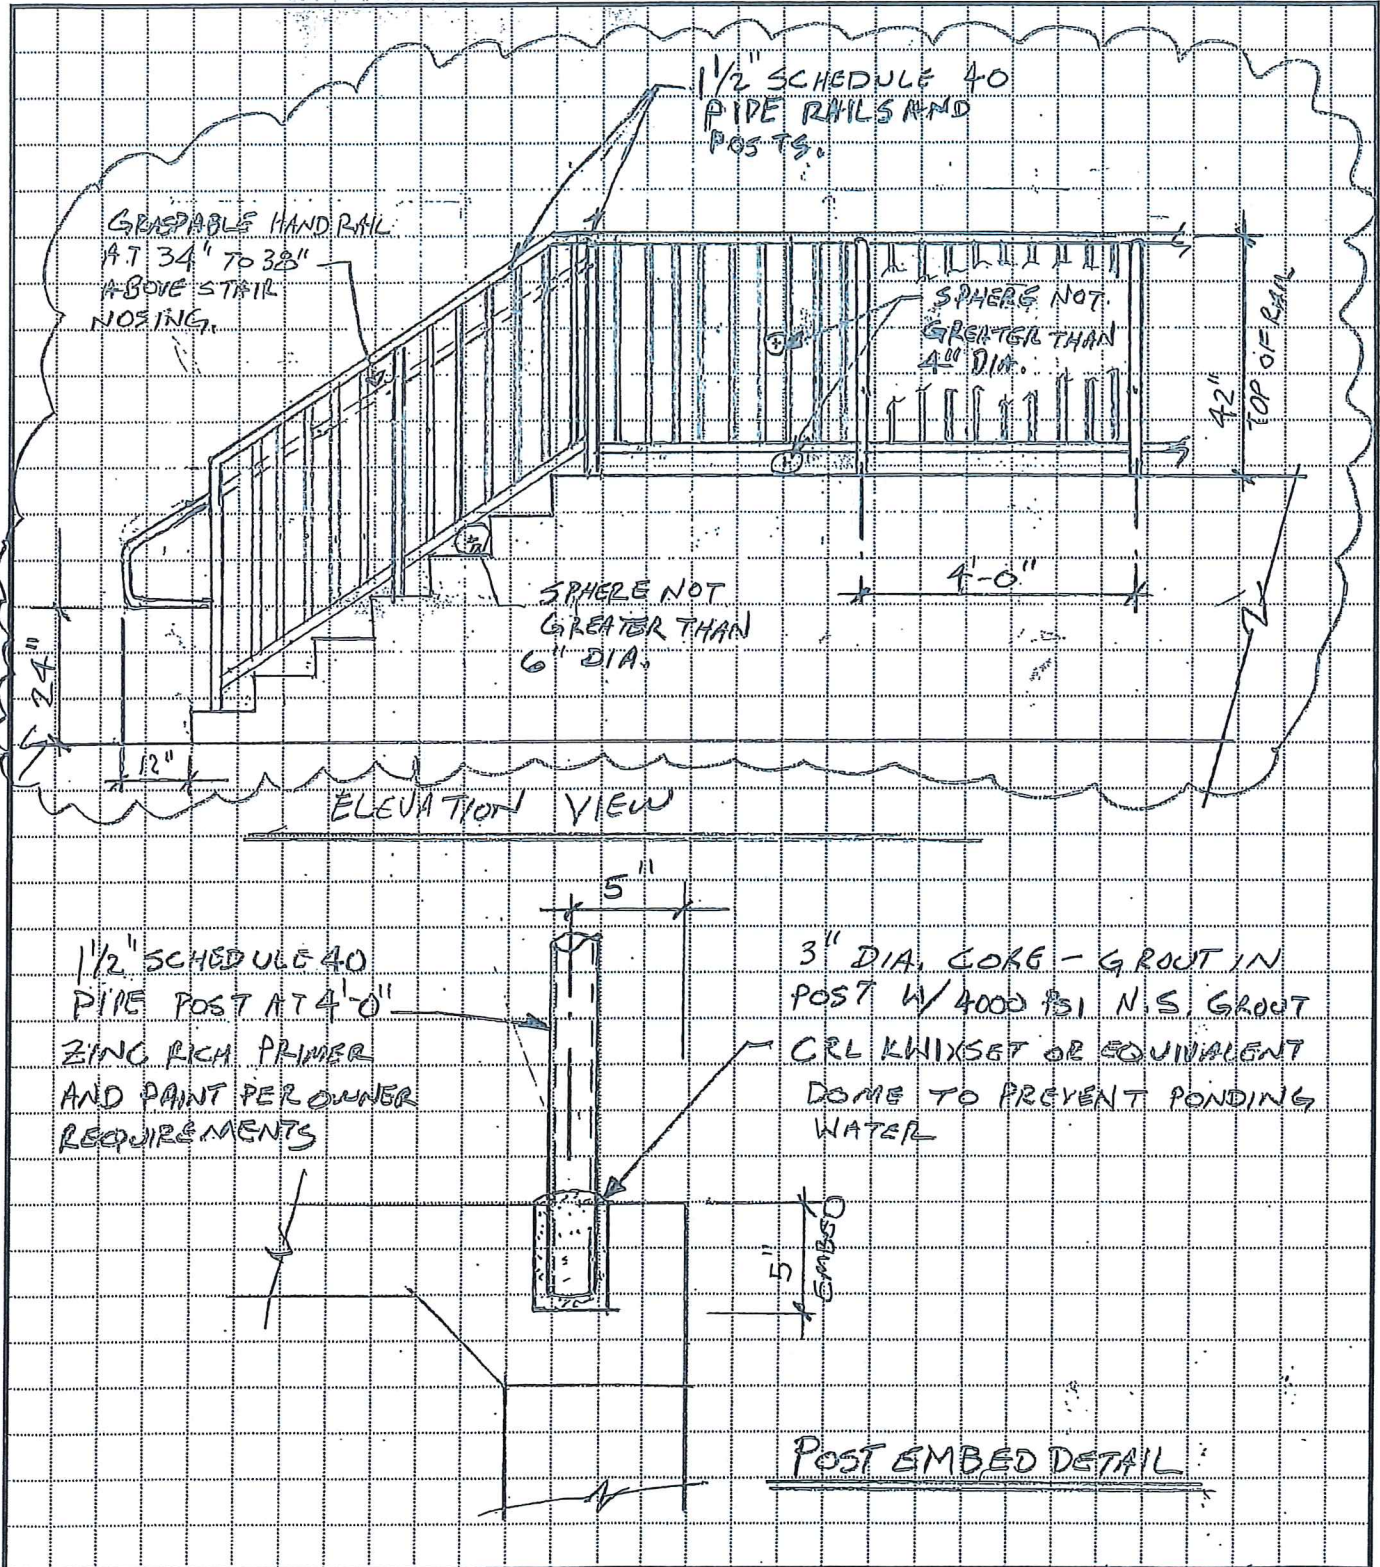 1 1/2" SCHEDULE 40
PIPE RAILS AND
POSTS.
GRASPABLE HANDRAIL
AT 34" TO 38"
ABOVE STAIR
NOSING.
SPHERE NOT
GREATER THAN
4" DIA.
42"
TOP OF RAIL
SPHERE NOT
GREATER THAN
6" DIA.
4'-0"
24"
12"
ELEVATION VIEW
5"
1 1/2" SCHEDULE 40
PIPE POST AT 4'-0"
ZINC RICH PRIMER
AND PAINT PER OWNER
REQUIREMENTS
3" DIA. CORE - GROUT IN
POST W/ 4000 PSI N.S. GROUT
CRL KWIXSET OR EQUIVALENT
DOME TO PREVENT PONDING
WATER
5"
EMBED
POST EMBED DETAIL